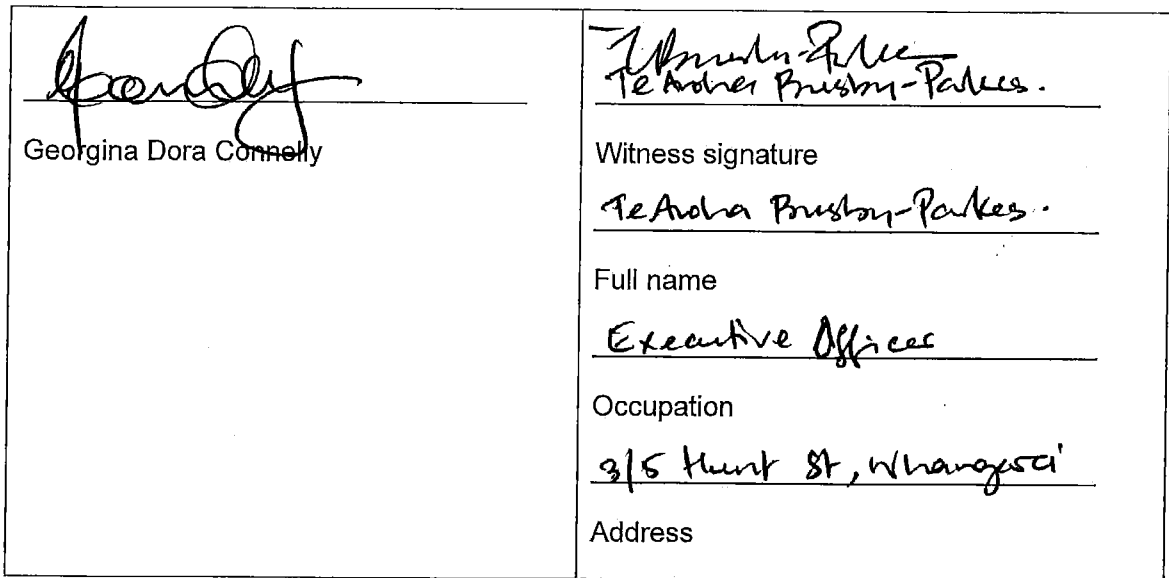 Georgina Dora Connelly
Te Aroha Busby-Parkes.
Witness signature
Te Aroha Busby-Parkes.
Full name
Executive Officer
Occupation
3/5 Hunt St, Whangarei
Address